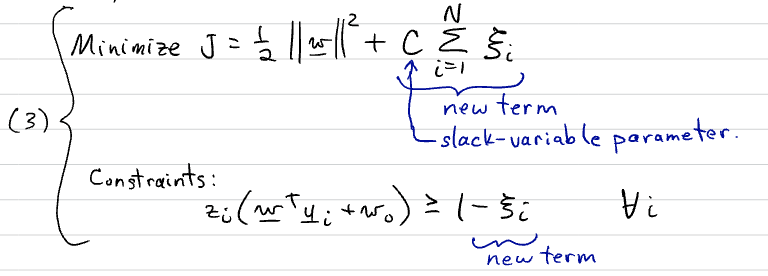 (3) Minimize J = ½ ||w||² + C Σ_{i=1}^{N} ξᵢ
new term
slack-variable parameter.
Constraints:
zᵢ(wᵀyᵢ + w₀) ≥ 1 - ξᵢ ∀i
new term